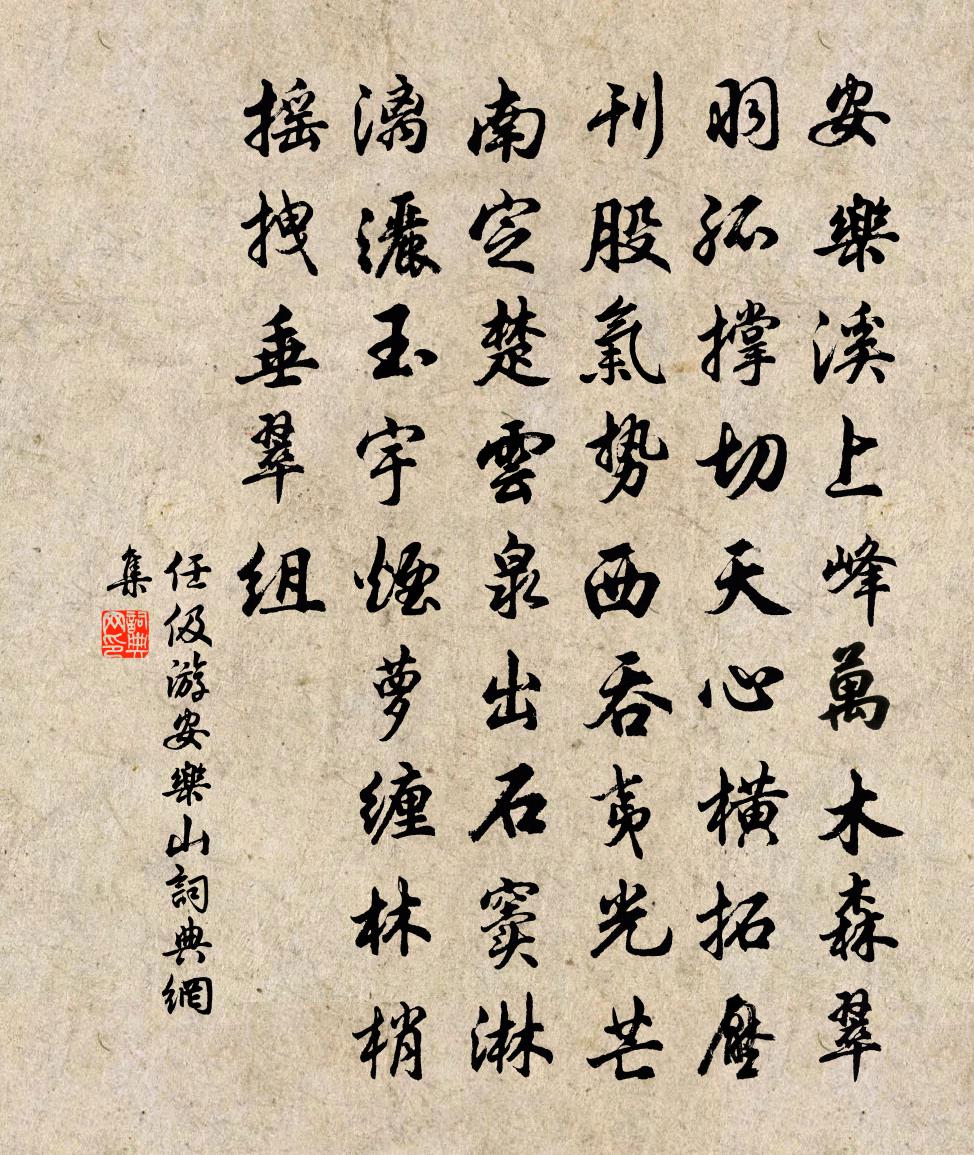 安樂溪上峰萬木森翠
羽孤撐切天心橫拓壓
刊股氣勢西吞夷光芒
南定楚雲泉出石竇淋
漓灑玉宇煙蘿纏林梢
搖拽垂翠組
任伋游安樂山詞典網
集
詞典
网印